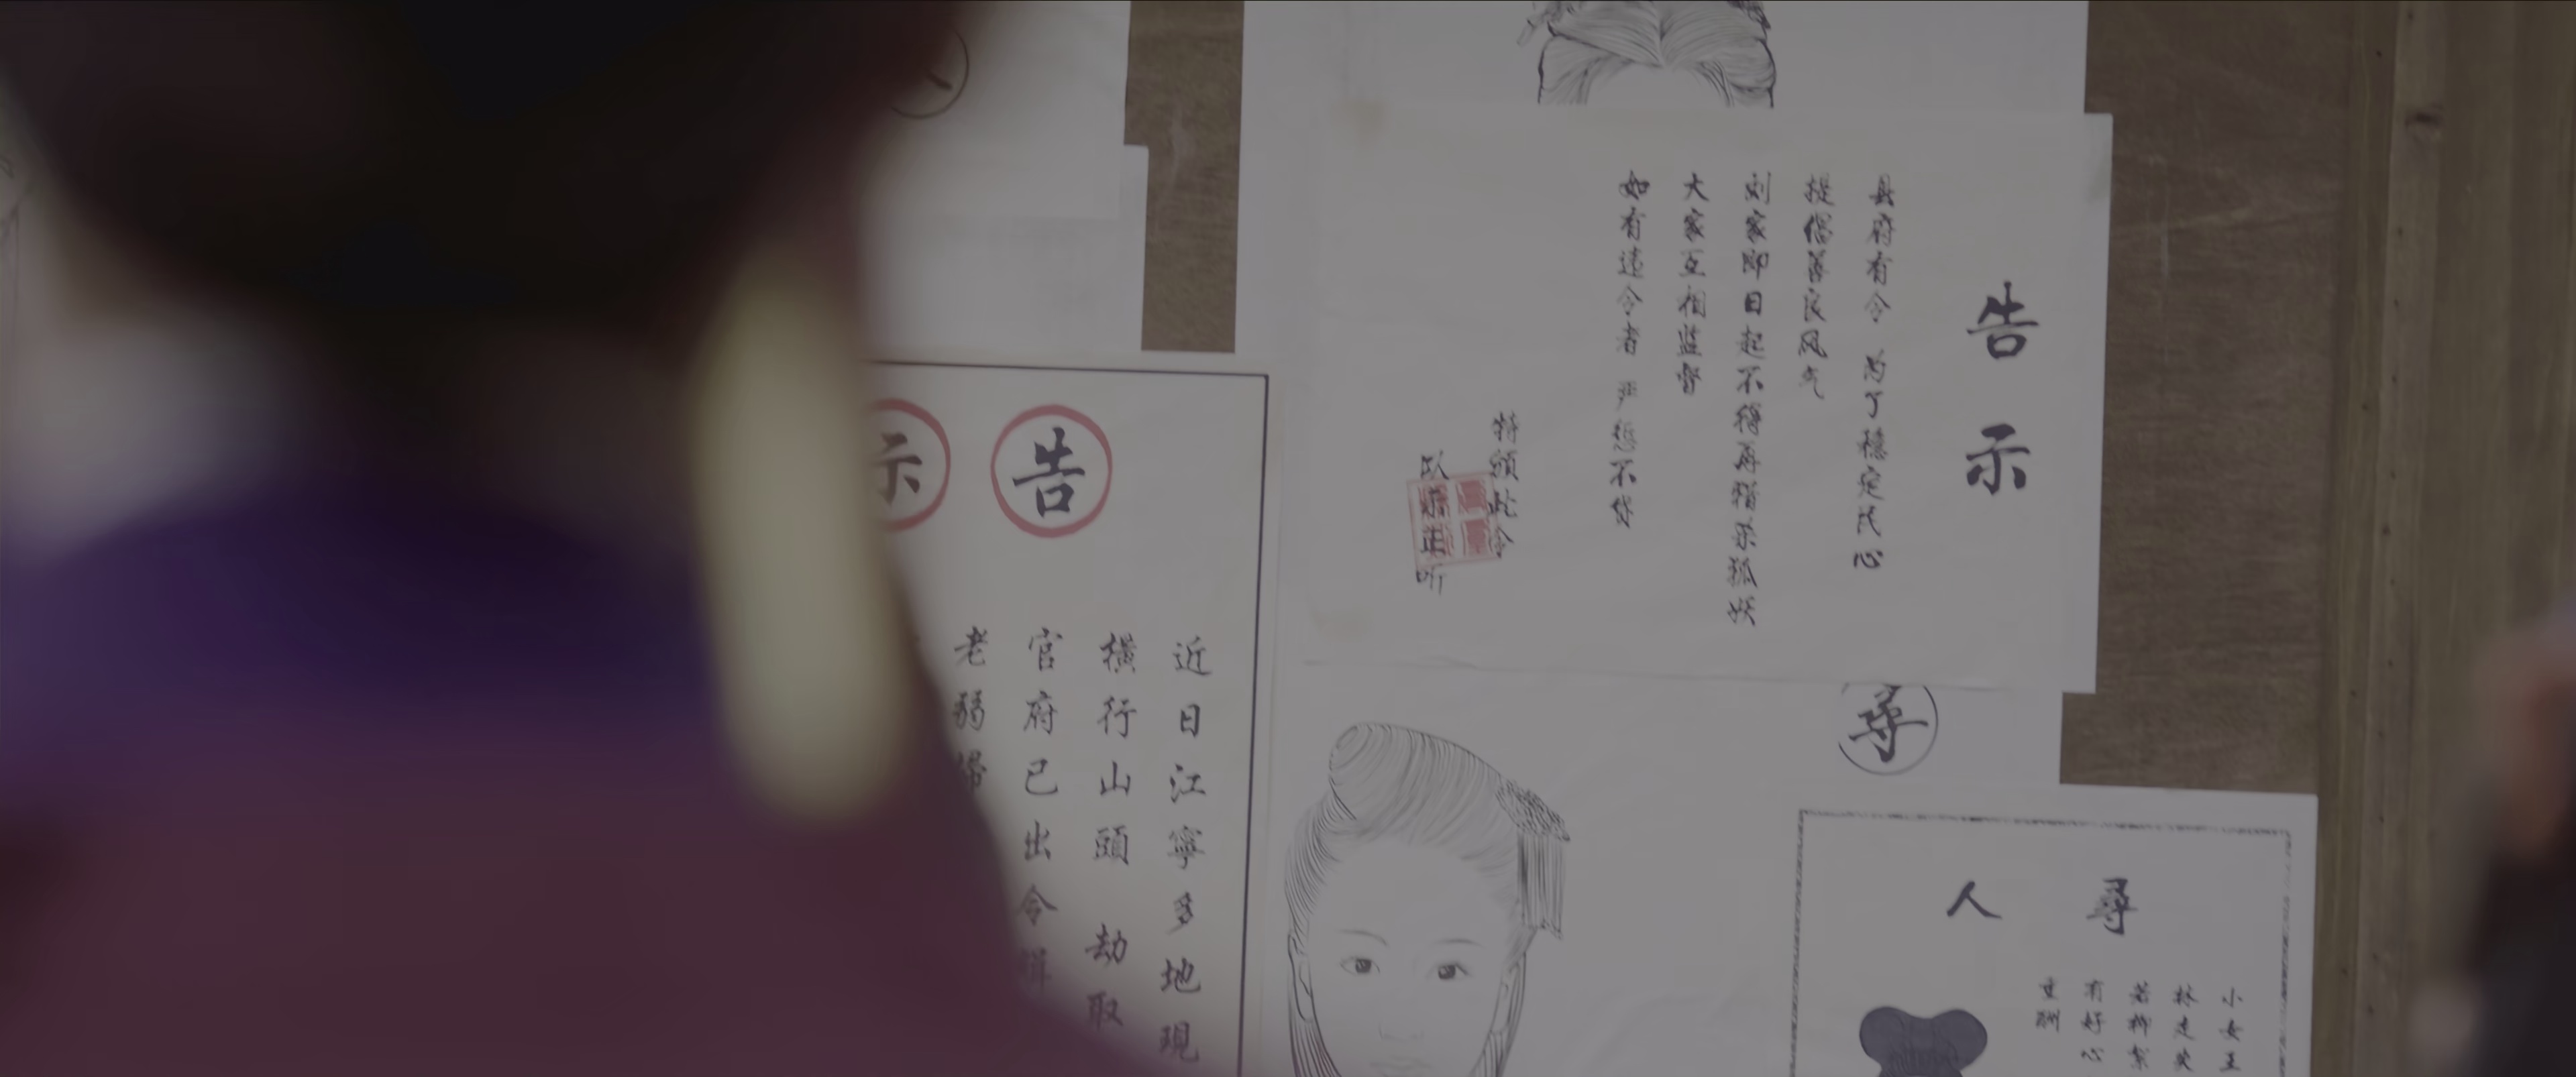 告示
县府有令 为了稳定民心
提倡善良风气
刘家即日起不得再猎杀狐妖
大家互相监督
如有违令者 严惩不贷
特颁此令
以正
听
告示
近日江寧多地現
橫行山頭 劫取
官府已出令緝
老弱婦
尋
尋人
小女玉
林走失
若柳絮
有好心
重酬